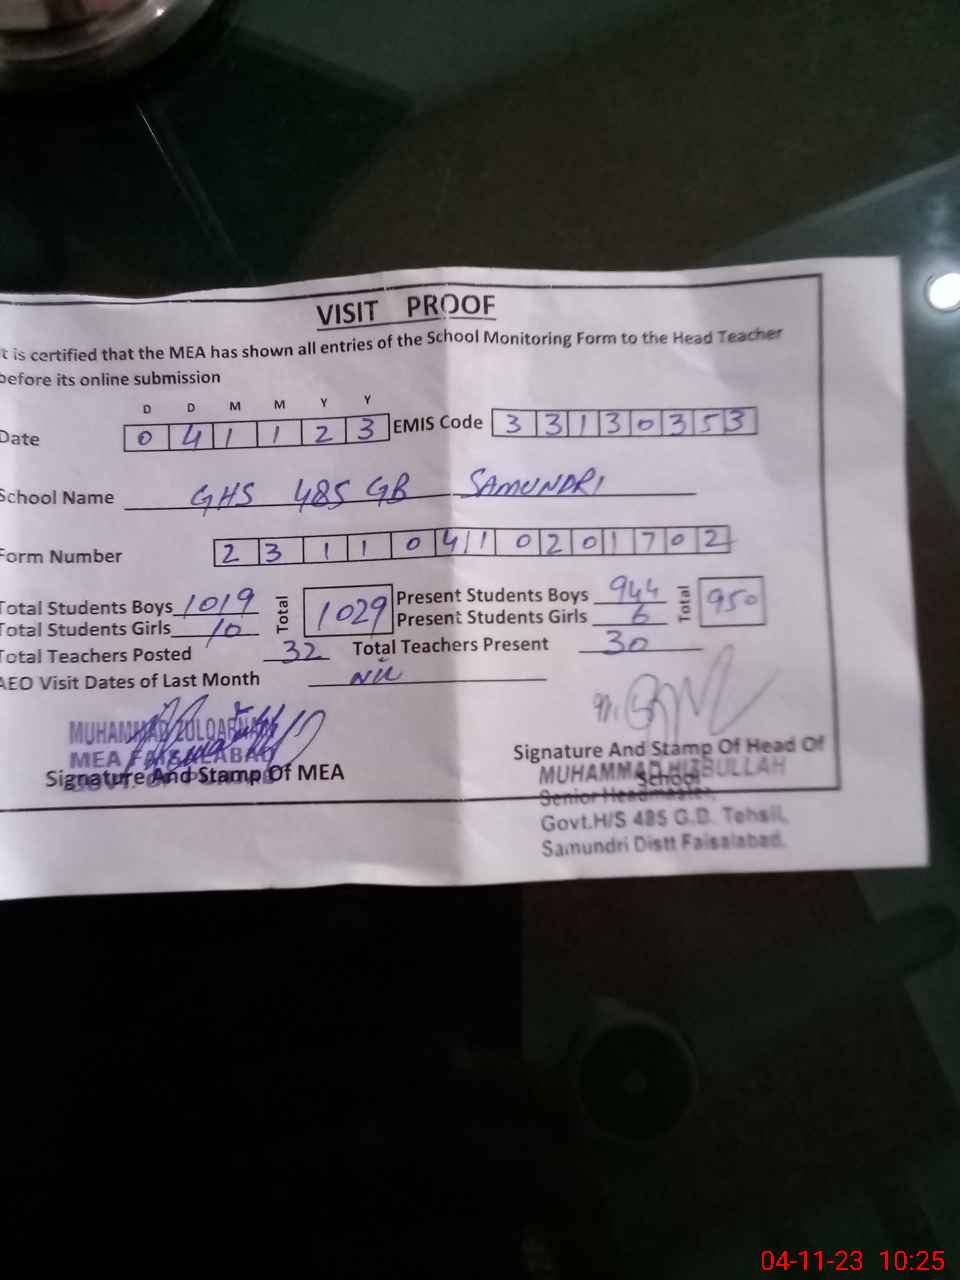 VISIT PROOF
t is certified that the MEA has shown all entries of the School Monitoring Form to the Head Teacher
before its online submission
D D M M Y Y
Date 0 4 1 1 2 3 EMIS Code 3 3 1 3 0 3 5 3
School Name GHS 485 GB SAMUNDRI
Form Number 2 3 1 1 0 4 1 0 2 0 1 7 0 2
Total Students Boys 1019 Total 1029 Present Students Boys 944 Total 950
Total Students Girls 10 Present Students Girls 6
Total Teachers Posted 32 Total Teachers Present 30
AEO Visit Dates of Last Month Nil
MUHAMMAD ZULQARNAIN
MEA FAISALABAD
Signature And Stamp Of MEA
Signature And Stamp Of Head Of
School
MUHAMMAD HIZBULLAH
Senior Headmaster,
Govt.H/S 485 G.B. Tehsil,
Samundri Distt Faisalabad.
04-11-23 10:25